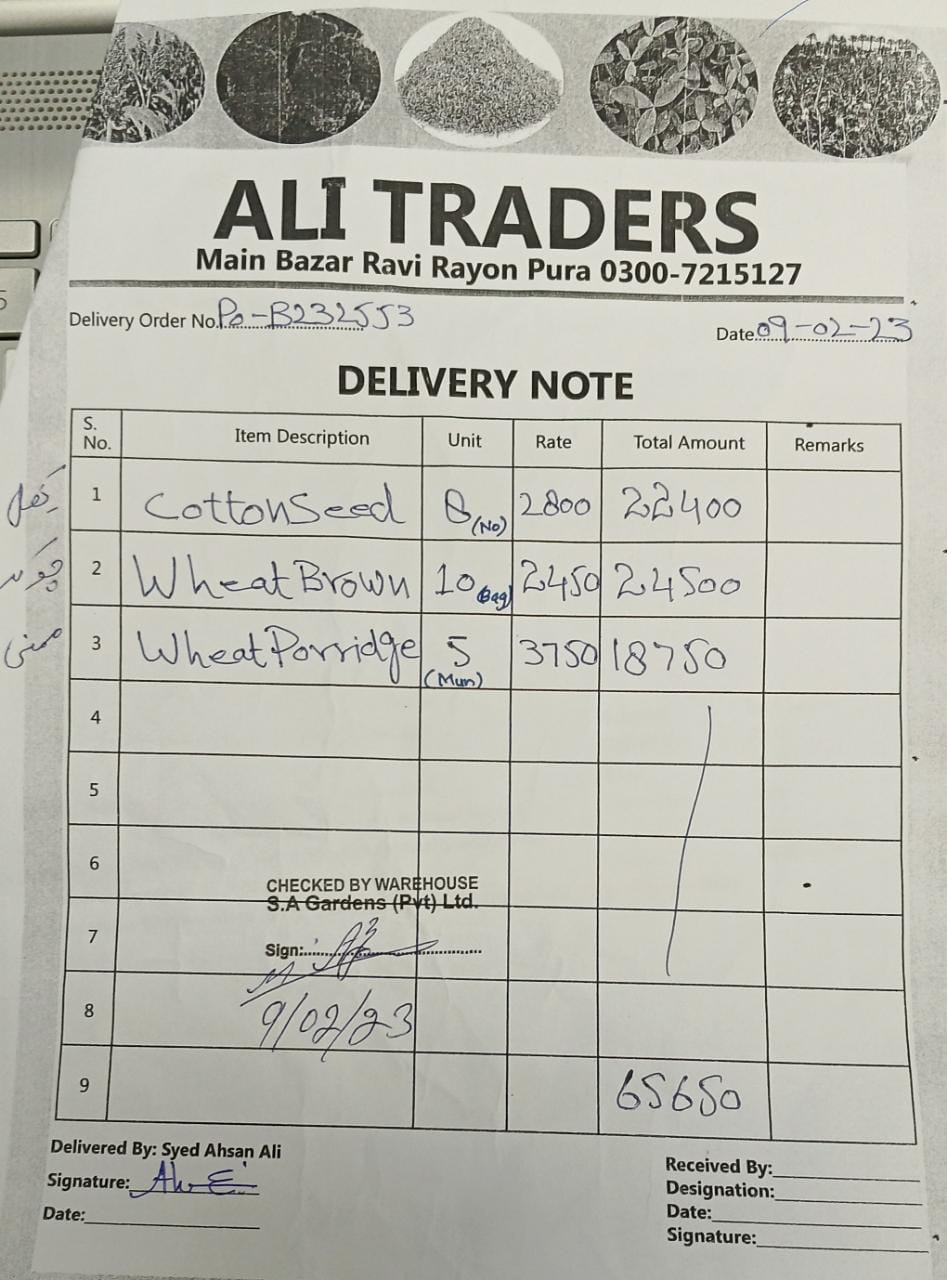 ALI TRADERS
Main Bazar Ravi Rayon Pura 0300-7215127
Delivery Order No. Po-B232553
Date 09-02-23
DELIVERY NOTE
S. No. Item Description Unit Rate Total Amount Remarks
1 CottonSeed 8 (No) 2800 22400
2 WheatBrown 10 (Bag) 2450 24500
3 WheatPorridge 5 (Mun) 3750 18750
4
5
6
CHECKED BY WAREHOUSE
S.A Gardens (Pvt) Ltd.
7
Sign:
8
9/02/23
9 65650
Delivered By: Syed Ahsan Ali
Signature:
Date:
Received By:
Designation:
Date:
Signature: